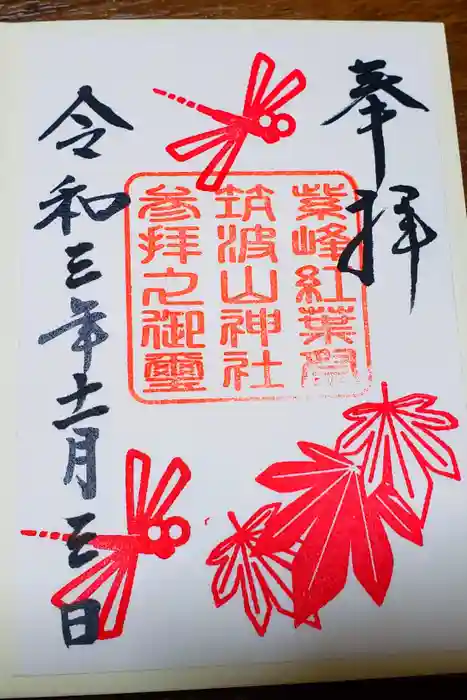 奉拝
紫峰紅葉賀
筑波山神社
参拝之御璽
令和三年十一月三日